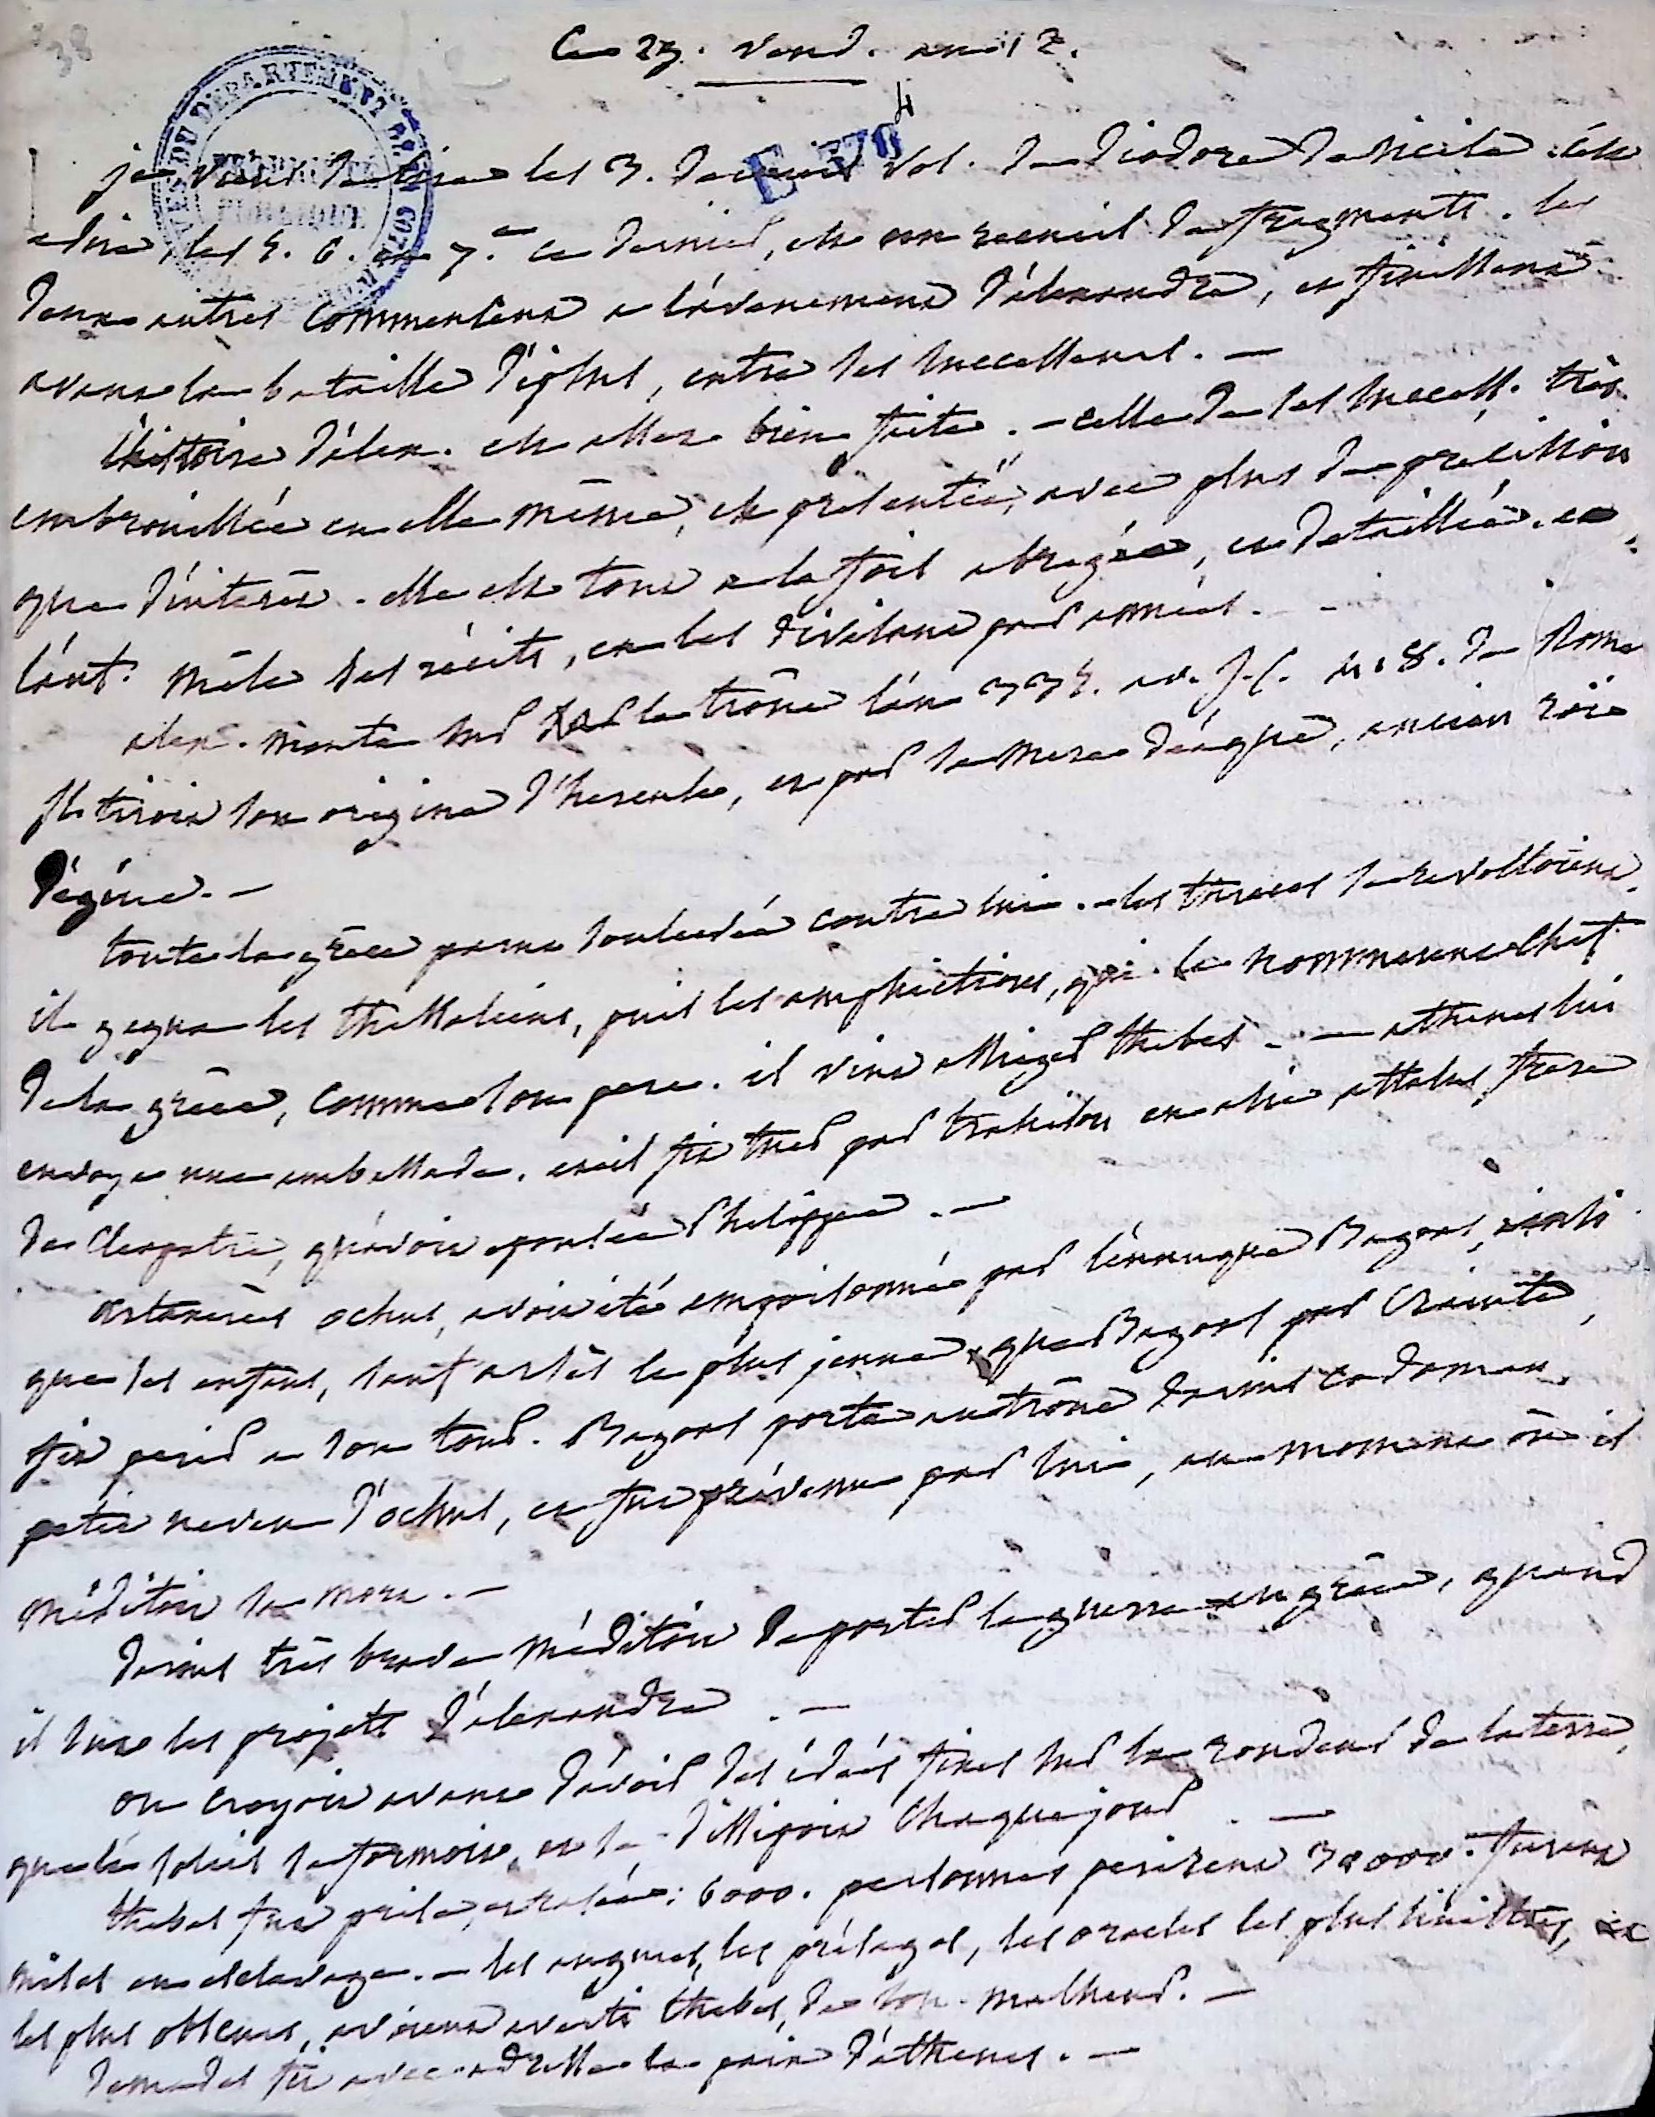 Ce 23. vend. an 12.
je viens de lire les 3. derniers vol. de Diodore de Sicile. c'est
a dire, les 5. 6. et 7.e ce dernier, est un recueil de fragments. les
deux autres commencent a l'avenement d'alexandre, et finissent
avant la bataille d'ipsus, entre ses successeurs. —
l'histoire d'alex. est assez bien faite. — celle de ses success. très
embrouillée en elle même, est presentée, avec plus de précision
que d'interêt. elle est tout a la fois abregée, et detaillée. et
l'aut. mêle ses récits, en les divisant par années. —
alex. monta sur le trône l'an 335. av. J.C. 418. de Rome
il tiroit son origine d'hercule, et par sa mere d'éaque, ancien roi
d'égine. —
toute la grèce parut soulevée contre lui. — les thraces se revoltoient.
il gagna les thessaliens, puis les amphictions, qui le nommerent chef
de la grèce, comme son pere. il vint assieger thebes. — athenes lui
envoya une ambassade. et il fit tuer par trahison en asie attalus frere
de Cleopatre, qu'avoit epousée Philippe. —
artaxerces ochus, avoit été empoisonné par l'eunuque Bagoas, ainsi
que ses enfans, sauf arsès le plus jeune, que Bagoas par crainte,
fit perir a son tour. Bagoas porta au trône darius codoman,
petit neveu d'ochus, et fut prévenu par lui, au moment où il
méditoit sa mort. —
darius très brave méditoit de porter la guerre en grèce, quand
il sut les projets d'alexandre. —
on croyoit avant d'avoir des idées fixes sur la rondeur de la terre,
que le soleil se formoit, et se dissipoit chaque jour. —
thebes fut prise, et rasée; 6000. personnes perirent 30000. furent
mises en esclavage. — les augures, les présages, les oracles les plus sinistres, et
les plus obscurs, avoient averti thebes, de son malheur. —
demades fit avec adresse la paix d'athenes. —